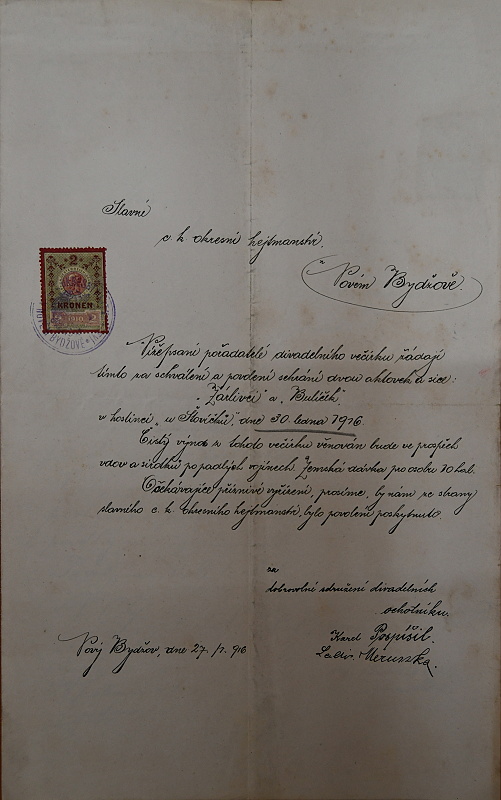 Slavné
c. k. okresní hejtmanství.
v
Novém Bydžově.
2
KRONEN
1910
BYDŽOVĚ
Nížepsaní pořadatelé divadelního večírku žádají
tímto za schválení a povolení sehrání dvou aktovek a sice:
„Žárlivci" a „Bulíček"
v hostinci „u Slovíčků", dne 30. ledna 1916.
Čistý výnos z tohoto večírku věnován bude ve prospěch
vdov a sirotků po padlých vojínech. Zemská dávka pro osobu 20 hal.
Očekávajíce příznivé vyřízení, prosíme, by nám ze strany
slavného c. k. okresního hejtmanství, bylo povolení poskytnuto.
za
dobrovolné sdružení divadelních
ochotníků.
Karel Pospíšil.
Ladis. Meruzka.
Nový Bydžov, dne 27./1. 916